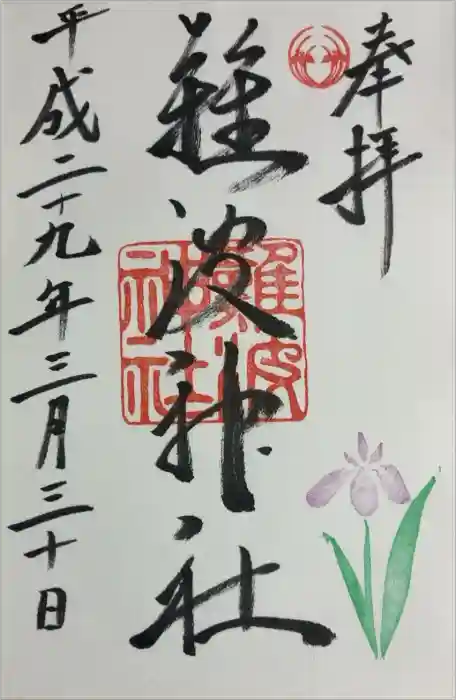 奉拝
難波神社
難波神社
平成二十九年三月三十日